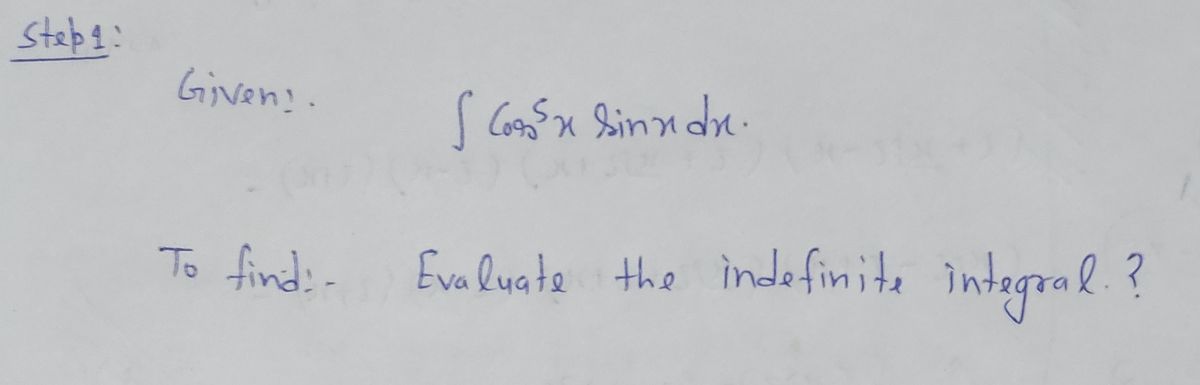 Step 1:
Given:.
∫ Cos⁵x Sinx dx.
To find:- Evaluate the indefinite integral. ?